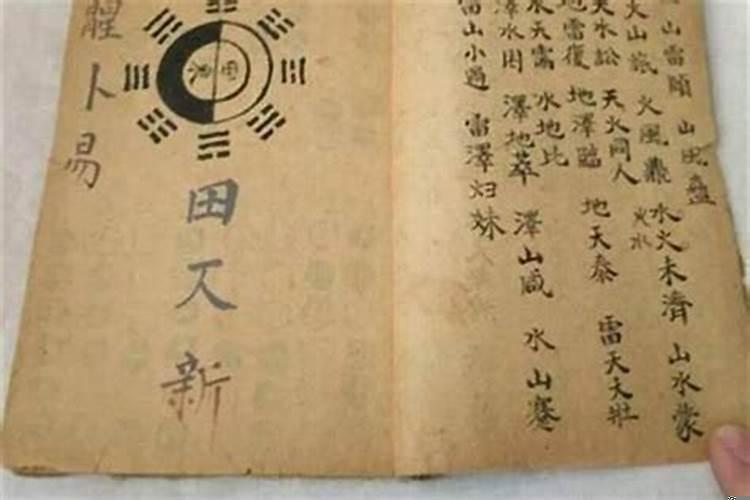 山雷頤 山風蠱
火山旅 火風鼎 水火未濟 山水蒙
火水
天水訟 天火同人
地雷復 地澤臨 地天泰 雷天大壯
水天需 水地比
澤水困 澤地萃 澤山咸 水山蹇
雷山小過 雷澤归妹
卜易
田 新